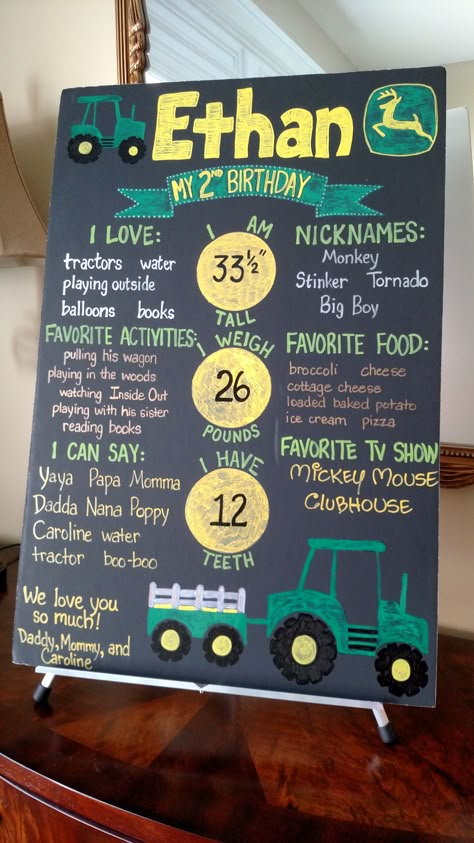 Ethan
MY 2ND BIRTHDAY
I LOVE:
tractors water
playing outside
balloons books
I AM
33½"
TALL
NICKNAMES:
Monkey
Stinker Tornado
Big Boy
FAVORITE ACTIVITIES:
pulling his wagon
playing in the woods
watching Inside Out
playing with his sister
reading books
I WEIGH
26
POUNDS
FAVORITE FOOD:
broccoli cheese
cottage cheese
loaded baked potato
ice cream pizza
I CAN SAY:
Yaya Papa Momma
Dadda Nana Poppy
Caroline water
tractor boo-boo
I HAVE
12
TEETH
FAVORITE TV SHOW
MICKEY MOUSE
CLUBHOUSE
We love you
so much!
Daddy, Mommy, and
Caroline